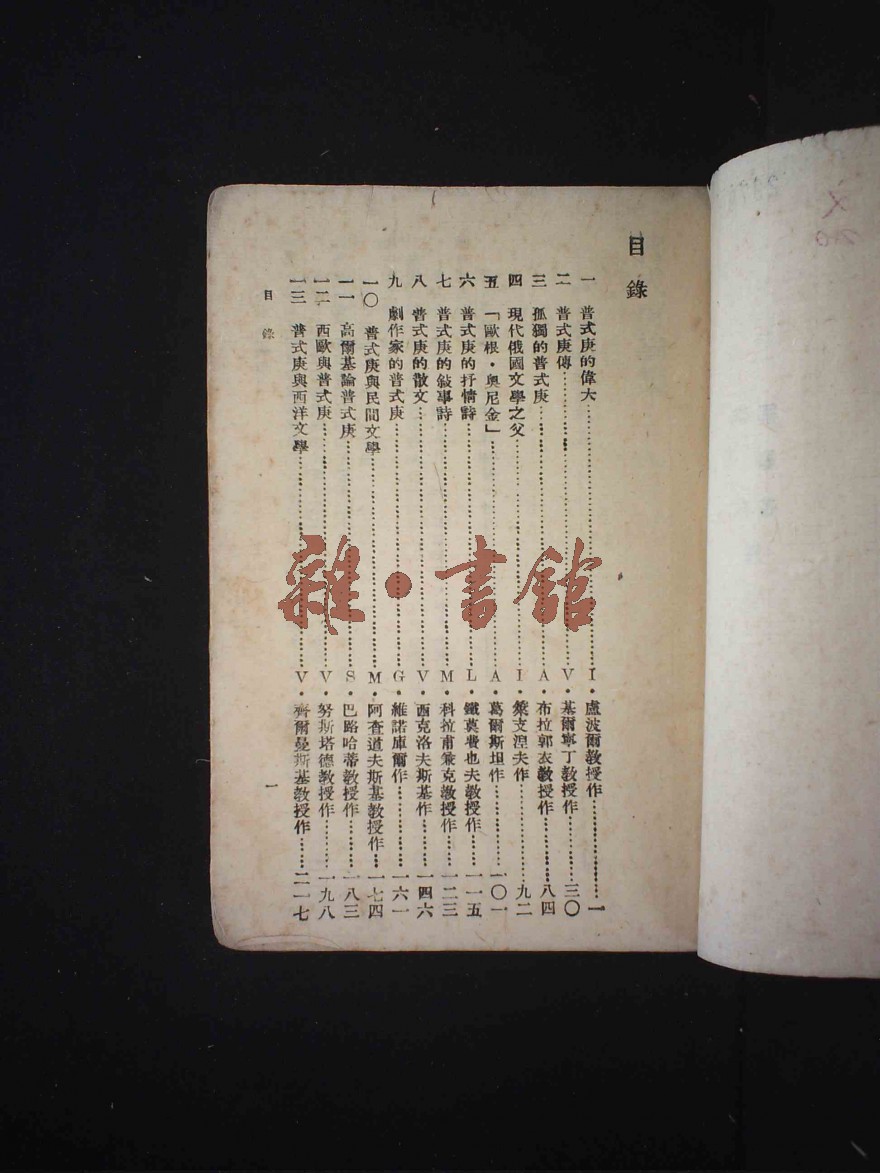 目錄
一 普式庚的偉大……I·盧波爾教授作……一
二 普式庚傳……V·基爾寧丁教授作……三〇
三 孤獨的普式庚……A·布拉郭衣教授作……八四
四 現代俄國文學之父……I·篥支涅夫作……九二
五 「歐根·奧尼金」……A·葛爾斯坦作……一〇一
六 普式庚的抒情詩……L·鐵莫費也夫教授作……一一五
七 普式庚的敍事詩……M·科拉甫兼克教授作……一二三
八 普式庚的散文……V·西克洛夫斯基作……一四六
九 劇作家的普式庚……G·維諾庫爾作……一六一
一〇 普式庚與民間文學……M·阿查道夫斯基教授作……一七四
一一 高爾基論普式庚……S·巴路哈蒂教授作……一八三
一二 西歐與普式庚……V·努斯塔德教授作……一九八
一三 普式庚與西洋文學……V·齊爾曼斯基教授作……二一七
目錄
一
雜·書館